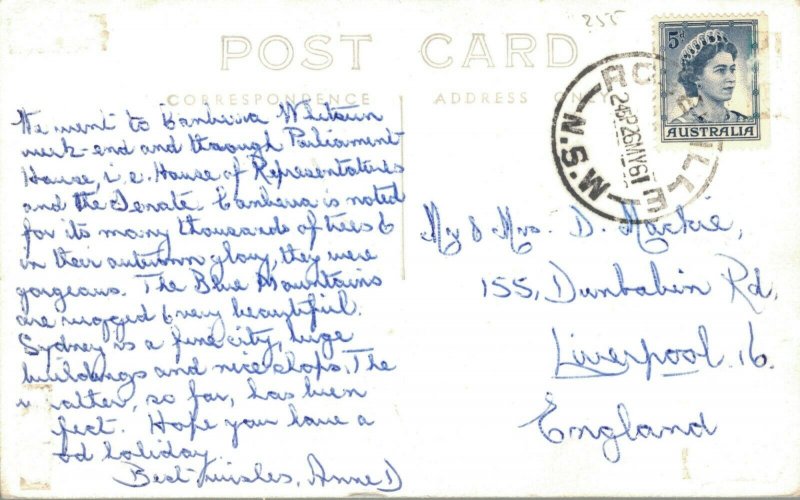 255
POST CARD
CORRESPONDENCE
ADDRESS ONLY
5D
AUSTRALIA
N.S.W.
26MY61
We went to Canberra Whitsun
week-end and through Parliament
House, i.e. House of Representatives
and the Senate. Canberra is noted
for its many thousands of trees &
in their autumn glory, they were
gorgeous. The Blue Mountains
are rugged & very beautiful.
Sydney is a fine city, huge
buildings and nice shops. The
w ather, so far, has been
fect. Hope you have a
od holiday.
Best wishes, Anne D
Mr & Mrs. D. Mackie,
155, Dunbabin Rd,
Liverpool. 16.
England